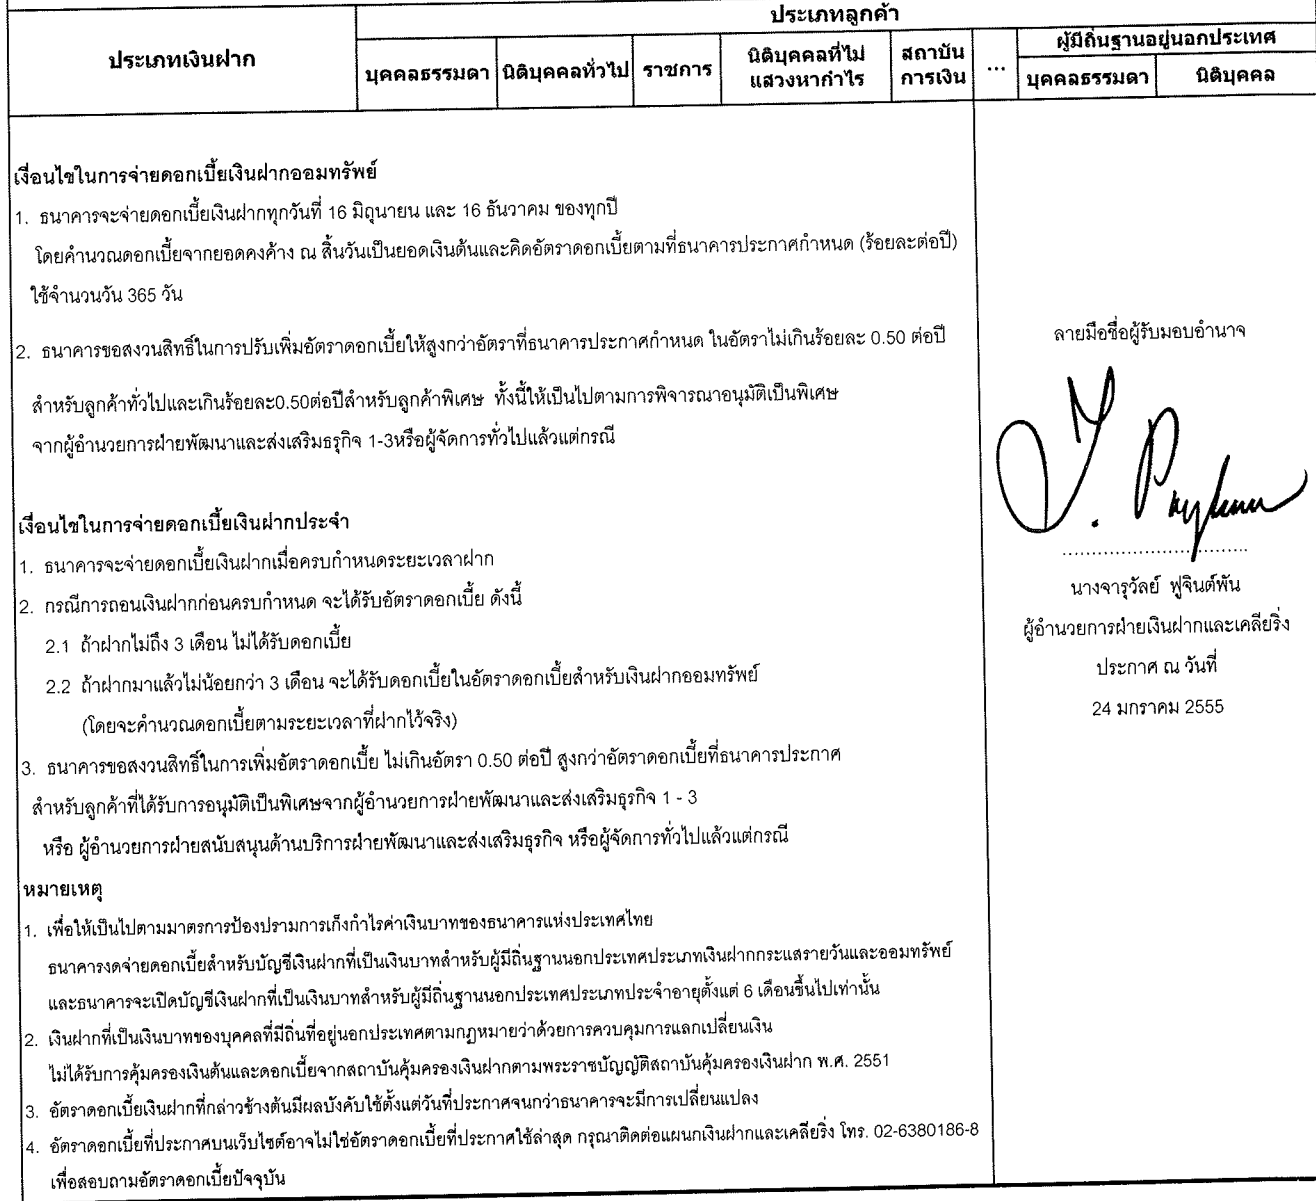 ประเภทลูกค้า
ประเภทเงินฝาก
บุคคลธรรมดา นิติบุคคลทั่วไป ราชการ นิติบุคคลที่ไม่แสวงหากำไร สถาบันการเงิน ... ผู้มีถิ่นฐานอยู่นอกประเทศ
บุคคลธรรมดา นิติบุคคล
เงื่อนไขในการจ่ายดอกเบี้ยเงินฝากออมทรัพย์
1. ธนาคารจะจ่ายดอกเบี้ยเงินฝากทุกวันที่ 16 มิถุนายน และ 16 ธันวาคม ของทุกปี
โดยคำนวณดอกเบี้ยจากยอดคงค้าง ณ สิ้นวันเป็นยอดเงินต้นและคิดอัตราดอกเบี้ยตามที่ธนาคารประกาศกำหนด (ร้อยละต่อปี)
ใช้จำนวนวัน 365 วัน
2. ธนาคารขอสงวนสิทธิ์ในการปรับเพิ่มอัตราดอกเบี้ยให้สูงกว่าอัตราที่ธนาคารประกาศกำหนด ในอัตราไม่เกินร้อยละ 0.50 ต่อปี
สำหรับลูกค้าทั่วไปและเกินร้อยละ0.50ต่อปีสำหรับลูกค้าพิเศษ ทั้งนี้ให้เป็นไปตามการพิจารณาอนุมัติเป็นพิเศษ
จากผู้อำนวยการฝ่ายพัฒนาและส่งเสริมธุรกิจ 1-3หรือผู้จัดการทั่วไปแล้วแต่กรณี
เงื่อนไขในการจ่ายดอกเบี้ยเงินฝากประจำ
1. ธนาคารจะจ่ายดอกเบี้ยเงินฝากเมื่อครบกำหนดระยะเวลาฝาก
2. กรณีการถอนเงินฝากก่อนครบกำหนด จะได้รับอัตราดอกเบี้ย ดังนี้
2.1 ถ้าฝากไม่ถึง 3 เดือน ไม่ได้รับดอกเบี้ย
2.2 ถ้าฝากมาแล้วไม่น้อยกว่า 3 เดือน จะได้รับดอกเบี้ยในอัตราดอกเบี้ยสำหรับเงินฝากออมทรัพย์
(โดยจะคำนวณดอกเบี้ยตามระยะเวลาที่ฝากไว้จริง)
3. ธนาคารขอสงวนสิทธิ์ในการเพิ่มอัตราดอกเบี้ย ไม่เกินอัตรา 0.50 ต่อปี สูงกว่าอัตราดอกเบี้ยที่ธนาคารประกาศ
สำหรับลูกค้าที่ได้รับการอนุมัติเป็นพิเศษจากผู้อำนวยการฝ่ายพัฒนาและส่งเสริมธุรกิจ 1 - 3
หรือ ผู้อำนวยการฝ่ายสนับสนุนด้านบริการฝ่ายพัฒนาและส่งเสริมธุรกิจ หรือผู้จัดการทั่วไปแล้วแต่กรณี
หมายเหตุ
1. เพื่อให้เป็นไปตามมาตรการป้องปรามการเก็งกำไรค่าเงินบาทของธนาคารแห่งประเทศไทย
ธนาคารงดจ่ายดอกเบี้ยสำหรับบัญชีเงินฝากที่เป็นเงินบาทสำหรับผู้มีถิ่นฐานนอกประเทศประเภทเงินฝากกระแสรายวันและออมทรัพย์
และธนาคารจะเปิดบัญชีเงินฝากที่เป็นเงินบาทสำหรับผู้มีถิ่นฐานนอกประเทศประเภทประจำอายุตั้งแต่ 6 เดือนขึ้นไปเท่านั้น
2. เงินฝากที่เป็นเงินบาทของบุคคลที่มีถิ่นที่อยู่นอกประเทศตามกฎหมายว่าด้วยการควบคุมการแลกเปลี่ยนเงิน
ไม่ได้รับการคุ้มครองเงินต้นและดอกเบี้ยจากสถาบันคุ้มครองเงินฝากตามพระราชบัญญัติสถาบันคุ้มครองเงินฝาก พ.ศ. 2551
3. อัตราดอกเบี้ยเงินฝากที่กล่าวข้างต้นมีผลบังคับใช้ตั้งแต่วันที่ประกาศจนกว่าธนาคารจะมีการเปลี่ยนแปลง
4. อัตราดอกเบี้ยที่ประกาศบนเว็บไซต์อาจไม่ใช่อัตราดอกเบี้ยที่ประกาศใช้ล่าสุด กรุณาติดต่อแผนกเงินฝากและเคลียริ่ง โทร. 02-6380186-8
เพื่อสอบถามอัตราดอกเบี้ยปัจจุบัน
ลายมือชื่อผู้รับมอบอำนาจ
นางจารุวัลย์ ฟูจินต์พัน
ผู้อำนวยการฝ่ายเงินฝากและเคลียริ่ง
ประกาศ ณ วันที่
24 มกราคม 2555